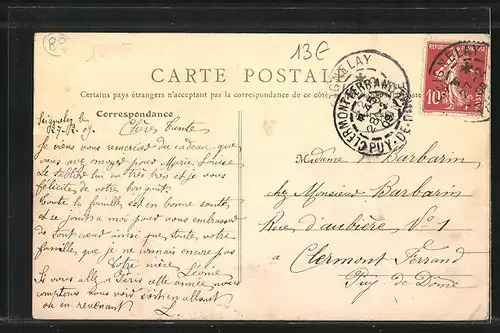 80
13€
CARTE POSTALE
Certains pays étrangers n'acceptant pas la correspondance de ce côté
Correspondance
Seignelay le
27-12-09.
Chère Tante
Je vous vous remercier du cadeau que
vous avez envoyé pour Marie Louise
Le tablier lui va très bien et je vous
félicite de votre bon goût.
Toute la famille est en bonne santé
et se joint à moi pour vous embrasser
de tout cœur ainsi que toute votre
famille que je ne connais encore pas
Votre nièce Léonie
Si vous allez à Paris cette année nous
comptons vous voir soit en allant
ou en revenant
L.
SEIGNELAY
CLERMONT-FERRAND
PUY-DE-DOME
10
Madame Barbarin
chez Monsieur Barbarin
Rue d'aubière N° 1
à Clermont Ferrand
Puy de Dôme